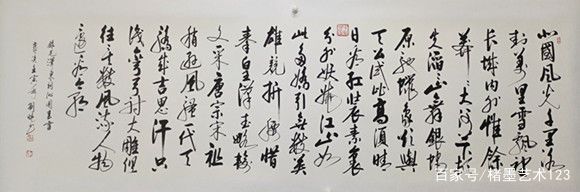 北國風光千里冰
封萬里雪飄望
長城內外惟餘
莽莽大河上下頓
失滔滔山舞銀蛇
原馳蠟象欲與
天公試比高須晴
日看紅裝素裹
分外妖嬈江山如
此多嬌引無數英
雄競折腰惜
秦皇漢武略輸
文采唐宗宋祖
稍遜風騷一代天
驕成吉思汗只
識彎弓射大雕俱
往矣數風流人物
還看今朝
錄毛澤東詞沁園春雪
百家号/楮墨艺术123